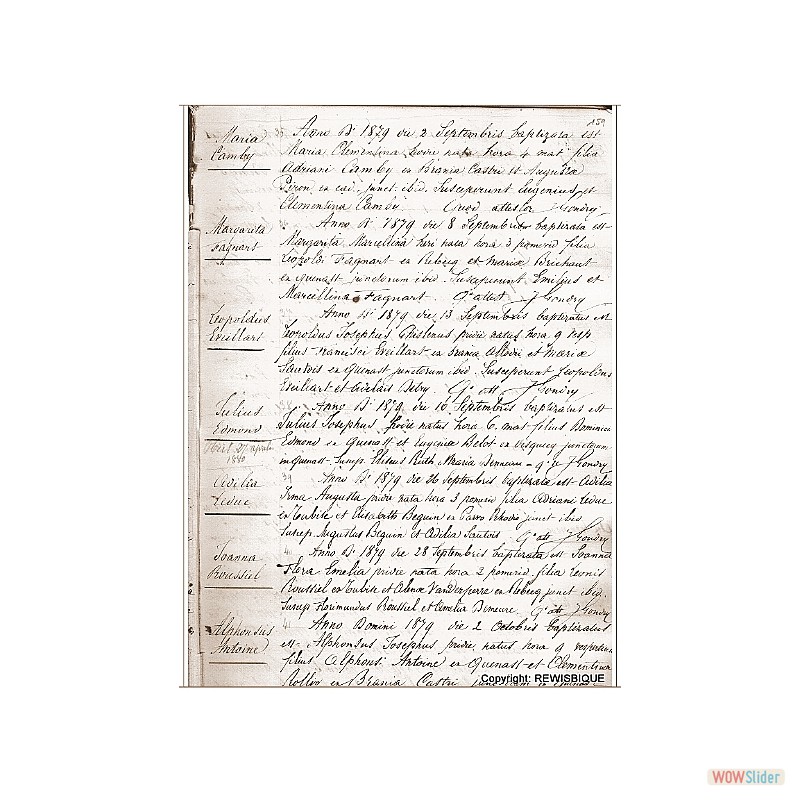 159
Maria
Camby
Anno Di 1879 die 2 Septembris baptizata est
Maria Clementina hodie nata hora 4 mat filia
Adriani Camby ex Brania Castri et Augusta
Piron ex ead. junct ibid. Susceperunt Eugenius et
Clementina Camby. Quod attestor J Gondry
Margarita
Fagnart
Anno Di 1879 die 8 Septembris baptizata est
Margarita Marcellina heri nata hora 3 pomerid filia
Leopoldi Fagnart ex Rebecq et Maria Brichaut
ex Quenast junctorum ibid. Susceperunt Emilius et
Marcellina Fagnart. Qd attest J Gondry
Leopoldus
Eveillart
Anno Di 1879 die 13 Septembris baptizatus est
Leopoldus Josephus Ghislenus pridie natus hora 9 vesp
filius Francisci Eveillart ex Brania Allodii et Maria
Sautois ex Quenast junctorum ibid. Susceperunt Leopoldus
Eveillart et Debry. Qd att J Gondry
Julius
Edmond
Obiit 27 aprilis
1880
38
Anno Di 1879 die 16 Septembris baptizatus est
Julius Josephus hodie natus hora 6 mat filius Dominici
Edmond ex Quenast et Eugenia Delot ex junctorum
in Quenast. Suscep. Maria Demeure - qd a J Gondry
Adilia
Leduc
39
Anno Di 1879 die 26 Septembris baptizata est Adilia
Irma Augusta pridie nata hora 3 pomerid filia Adriani Leduc
ex Tubise et Elisabeth Beguin ex Parvo Rhodio junct ibid.
Suscep Augustus Beguin et Adilia Sautois Qd att J Gondry
Joanna
Roussiel
Anno Di 1879 die 28 Septembris baptizata est Joanna
Flora Emelia pridie nata hora 2 pomerid. filia Leonis
Roussiel ex Tubise et Vanderperre ex Rebecq junct ibid.
Suscep Florimundus Roussiel et Emelia Demeure. Qd att J Gondry
Alphonsus
Antoine
Anno Domini 1879 die 2 Octobris baptizatus
est Alphonsus Josephus pridie natus hora 9 vespertina
filius Alphonsi Antoine ex Quenast et Clementina
Rollin ex Brania Castri
Copyright: REWISBIQUE
WOWSlider